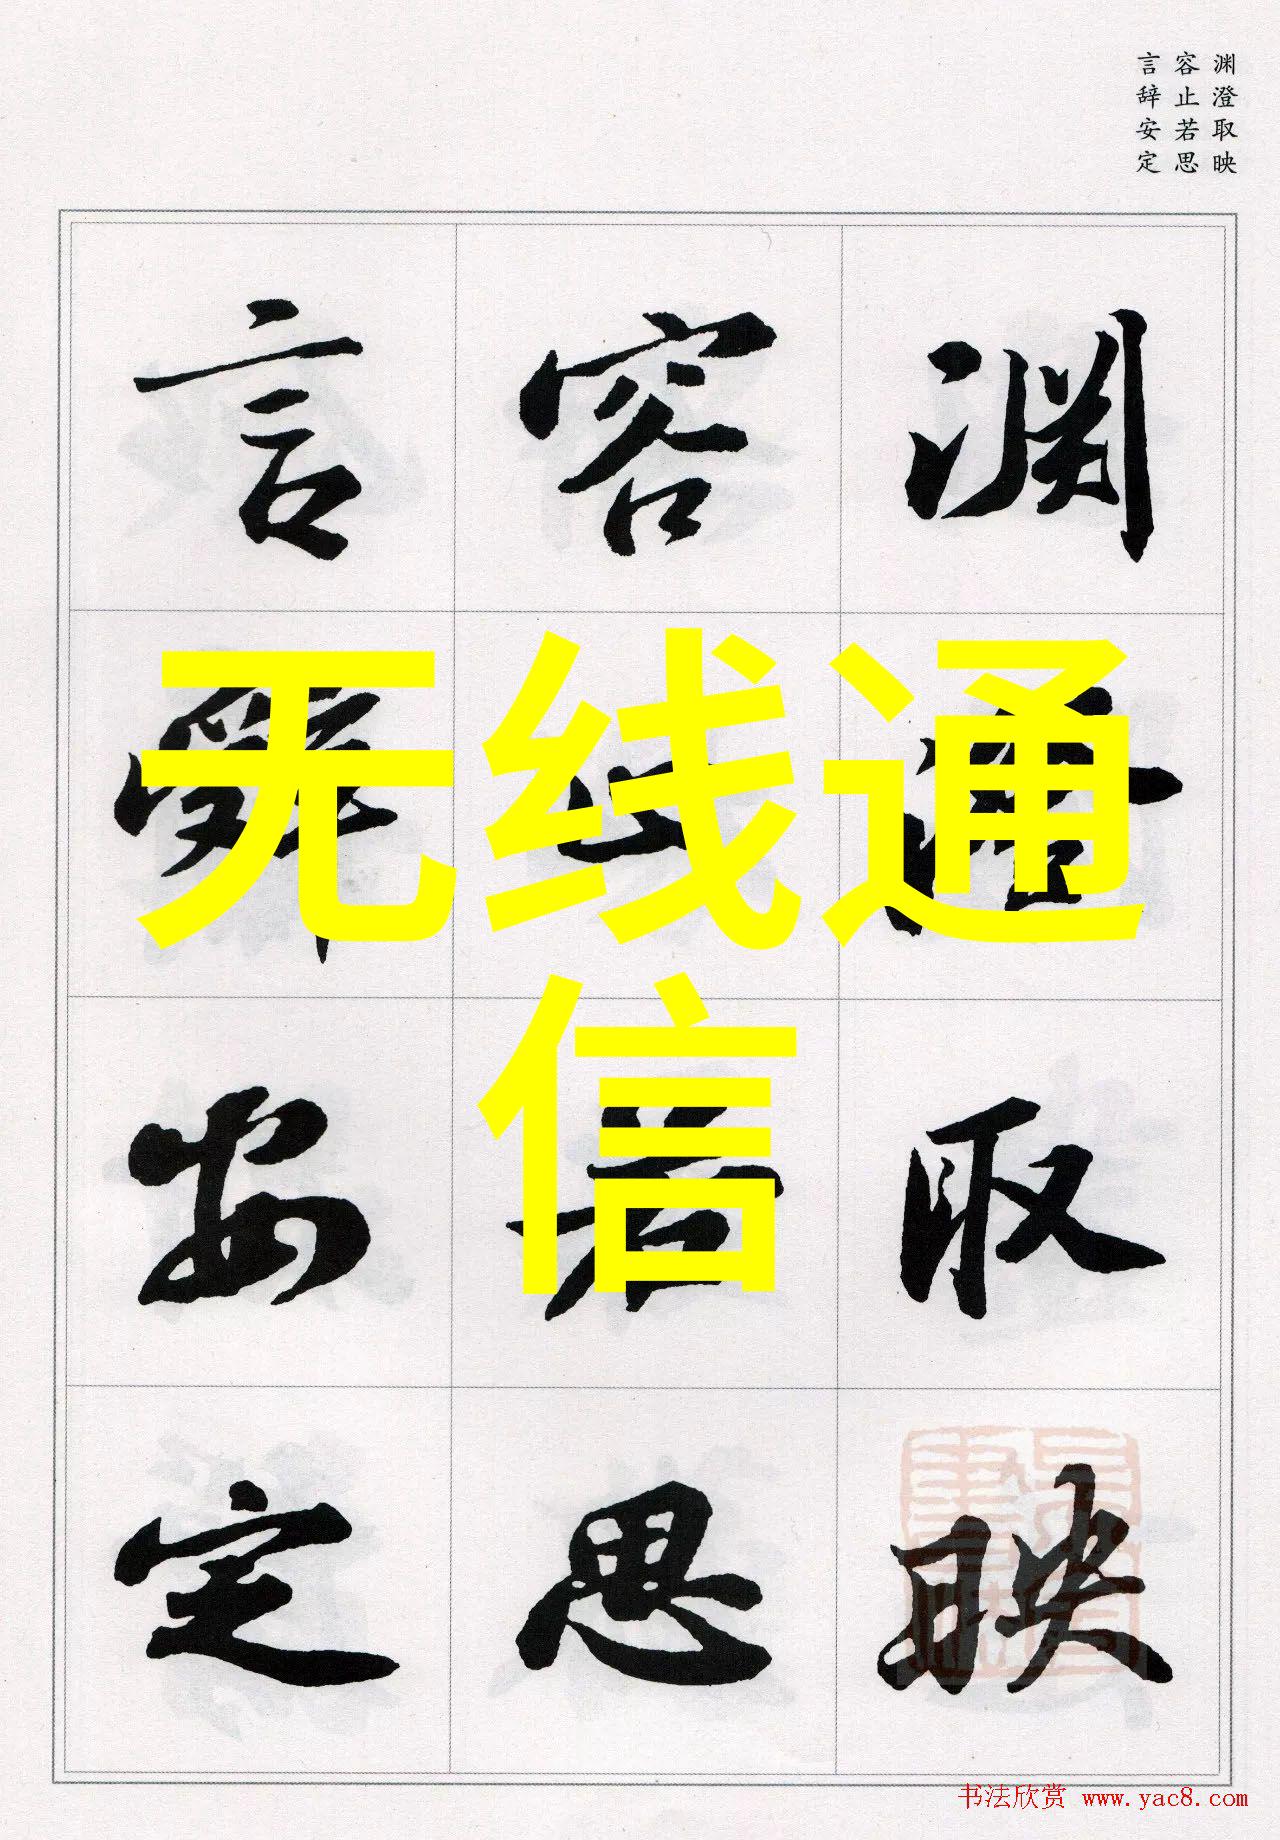 渊澄取映
容止若思
言辞安定
渊澄取映
容止若思
言辭安定
无线通
信
书法欣赏 www.yac8.com